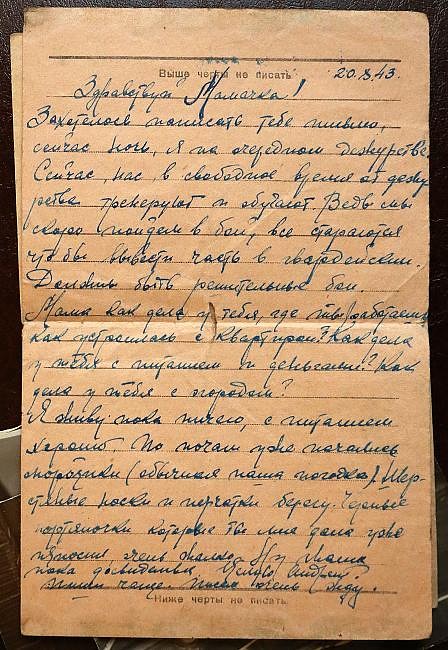 Выше черты не писать
20.X.43.
Здравствуй Мамочка!
Захотелося написать тебе письмо,
сейчас ночь, я на очередном дежурстве.
Сейчас, нас, в свободное время от дежу
рства тренеруют и обучают. Ведь мы
скоро пойдем в бой, все стараются
что бы вывести часть в гвардейские.
Должны быть решительные бои.
Мама как дела у тебя, где ты работаешь,
как устроилась с квартирой? Как дела
у тебя с питанием и деньгами? Как
дела у тебя с огородом?
Я живу пока ничего, с питанием
хорошо. По ночам уже начались
морозчики (обычная наша погодка). Шер-
стяные носки и перчатки берегу. Черные
портяночки которые ты мне дала уже
износил очень жалко. Ну Мама
пока досвидания Целую Андрей
пиши чаще. Писем очень жду.
Ниже черты не писать